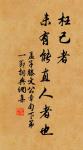 枉己者
未有能直人者也
孟子滕文公章句下第
一篇词典网集